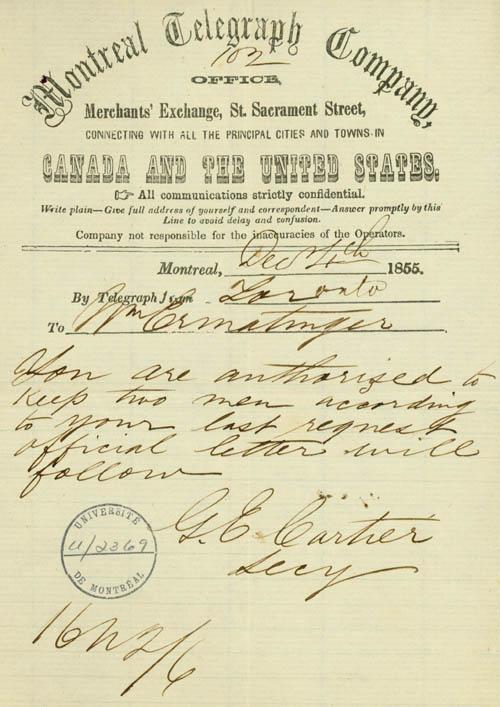 Montreal Telegraph Company,
102
OFFICE,
Merchants' Exchange, St. Sacrament Street,
CONNECTING WITH ALL THE PRINCIPAL CITIES AND TOWNS IN
CANADA AND THE UNITED STATES.
☞ All communications strictly confidential.
Write plain—Give full address of yourself and correspondent—Answer promptly by this
Line to avoid delay and confusion.
Company not responsible for the inaccuracies of the Operators.
Montreal, Dec 4th 1855.
By Telegraph from Toronto
To Wm Ermatinger
You are authorised to
keep two men according
to your last request
official letter will
follow
G. E. Cartier
Secy
UNIVERSITÉ
U/2369
DE MONTRÉAL